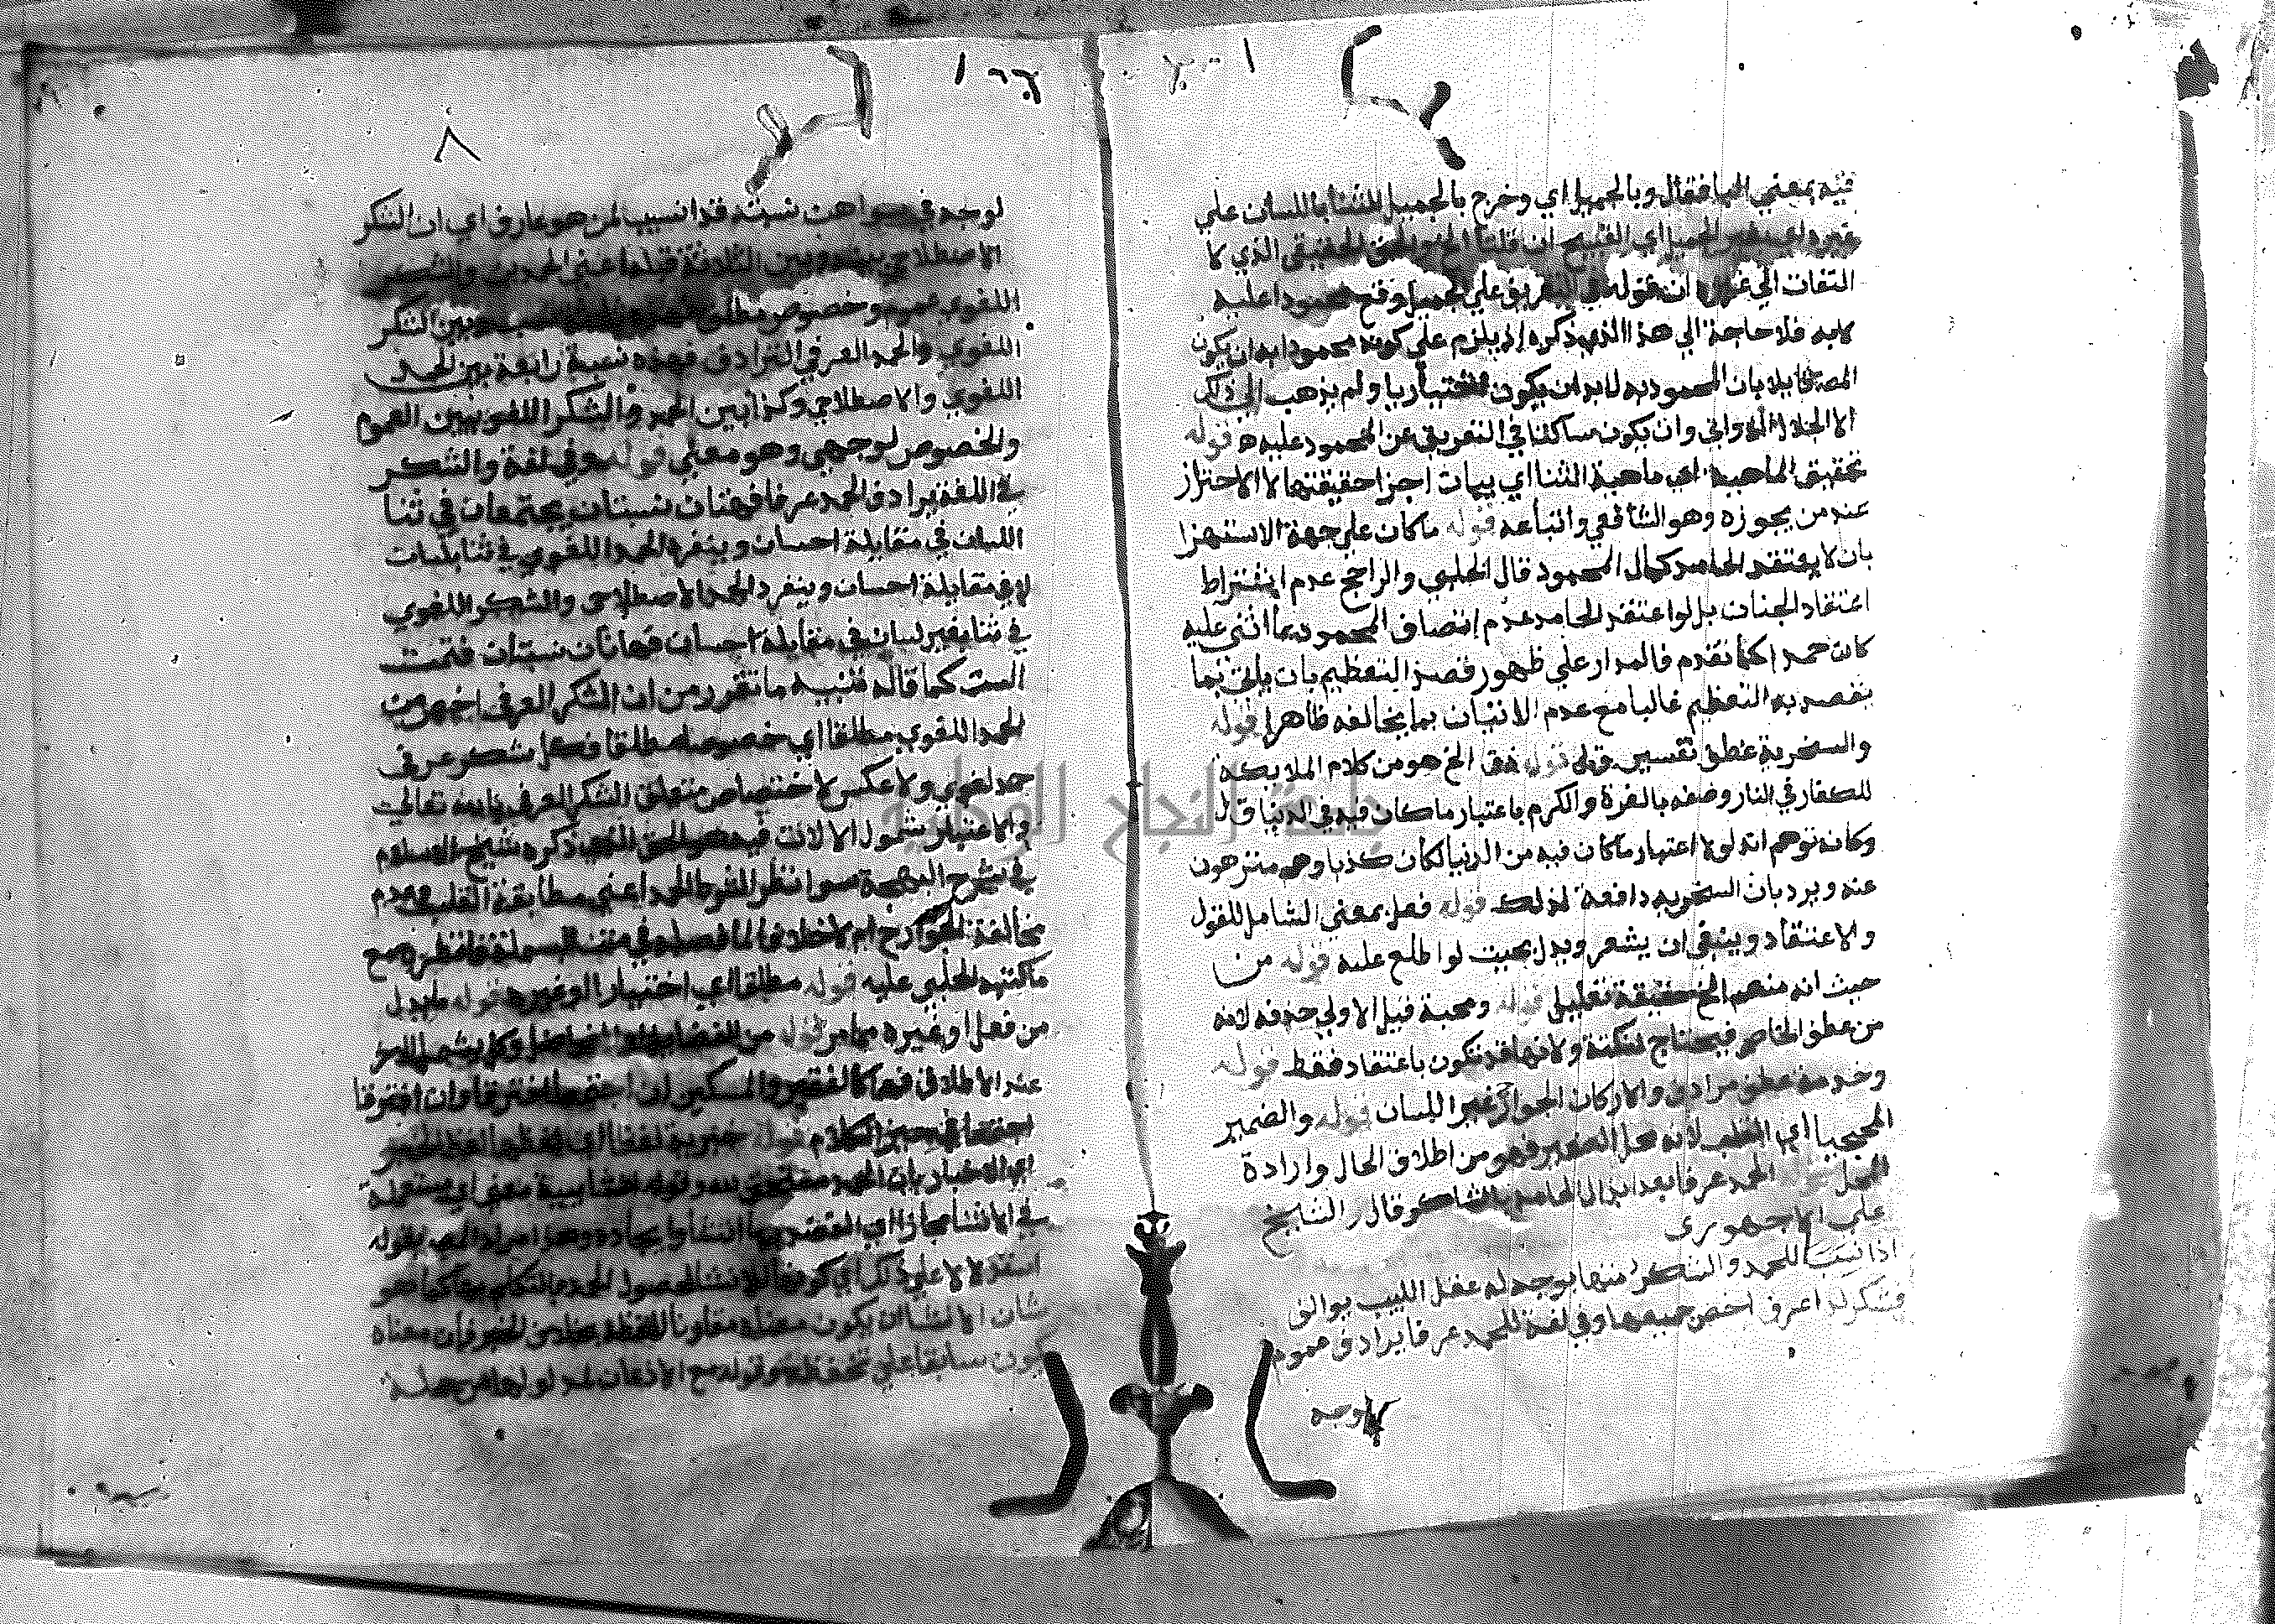 فيه بمعني الباء فقال وبالجميل اي وخرج بالجميل الثنا باللسان علي
غيره اي بغير الجميل اي القبيح ان قلنا الخ الحقيقي الذي لا
التفات الي غيره ان قوله في التعريف علي الجميل وقع محمودا عليه
لا به فلا حاجة الي هذا الذي ذكره اذ يلزم علي كونه محمودا به ان يكون
المص قايلا بان المحمود به لا بد ان يكون اختياريا ولم يذهب الي ذلك
الا الجلال الدواني وان يكون ساكتا في التعريف عن المحمود عليه ه قوله
تحقيق الماهية اي ماهية الثنا اي بيان اجزا حقيقتها لا الاحتراز
عند من يجوزه وهو الشافعي واتباعه قوله ما كان علي جهة الاستهزا
بان لا يعتقد الحامد كمال المحمود قال الحلبي والراجح عدم اشتراط
اعتقاد الجنان بل لو اعتقد الحامد عدم اتصاف المحمود بما اثني عليه
كان حمدا كما تقدم فالمدار علي ظهور قصد التعظيم بان ياتي بما
يقصد به التعظيم غالبا مع عدم الاتيان بما يخالفه ظاهرا قوله
والسخرية عطف تفسير قوله ذق الخ هو من كلام الملايكة
للكفار في النار وصفه بالعزة والكرم باعتبار ما كان فيه في الدنيا قال
وكانه توهم انه لولا اعتبار ما كان فيه من الدنيا لكان كذبا وهم منزهون
عنه ويرد بان السخريه دافعة لذلك قوله فعل بمعني الشامل للقول
والاعتقاد وينبغي ان يشعر ويدل بحيث لو اطلع عليه قوله من
حيث انه منعم الخ حقيقة تعليلي قوله ومحبة قبل الاولي حذفه لانه
من عطف الخاص فيحتاج لنكتة ولانها قد تكون باعتقاد فقط قوله
وخدمة عطف مرادف والاركان الجوارح غير اللسان قوله والضمير
المحجبا اي القلب لانه محل الضمير فهو من اطلاق الحال وارادة
المحل قوله الحمد عرفا بعد ابدال الحامد بالشاكر قال الشيخ
علي الاجهوري
اذا نسبت للحمد والشكر منها بوجه له عقل اللبيب يوالف
فشكر لدا عرف اخص جميعها وفي لغة للحمد عرفا يرادف عموم
لوجه
١٦٦
٨
لوجه في سواهن نسبته فذا نسب لمن هو عارف اي ان الشكر
الاصطلاحي بينه وبين الثلاثة قبله اعني الحمدين والشكر
اللغوي عموم وخصوص مطلق وبين الشكر
اللغوي والحمد العرفي الترادف فهذه نسبة رابعة بين الحمد
اللغوي والاصطلاحي وكذا بين الحمد والشكر اللغويين العموم
والخصوص لوجهي وهو معني قوله وفي لغة والشكر
في اللغة يرادف الحمد عرفا فهتان نسبتان ويجتمعان في ثنا
اللسان في مقابلة احسان وينفرد الحمد اللغوي في ثنا بلسان
لا في مقابلة احسان وينفرد الحمد الاصطلاحي والشكر اللغوي
في ثنا بغير لسان في مقابلة احسان فهاتان نسبتان فتمت
الست كما قاله تنبيه ما تقرر من ان الشكر العرفي اخص من
الحمد اللغوي مطلقا اي خصوصا مطلقا فكل شكر عرفي
حمد لغوي ولا عكس لاختصاص متعلق الشكر العرفي بالله تعالي
والاعتبار شمول الالات فيه هو الحق الذي ذكره شيخ الاسلام
في شرح البهجة سوا نظر لشرط الحمد اعني مطابقة القلب وعدم
مخالفة الجوارح ام لا خلافا لما فصله في مقدمة البسملة فانظره مع
ما كتبه الحلبي عليه قوله مطلقا اي اختياريا او غيره قوله ما يدل
من فعل او غيره مما مر قوله من الفضايل وكل يشمل الاخر
عند الاطلاق فهما كالفقير والمسكين ان اجتمعا افترقا وان افترقا
اجتمعا في حيز الكلام قوله خبرية لفظا
اي الاخبار بان الحمد مستحق لله وقوله انشايية معني اي مستعملة
في الانشا مجازا اي القصد بها انشا وايجاده وهذا مراد المص بقوله
استقلالا علي ذكر اي كونها للانشا لحصول الحمد بالتكلم بها كما هو
شان الانشا ان يكون معناه مقارنا للفظه بخلاف الخبر فان معناه
يكون سابقا علي تحقق لفظه وقوله مع الاذعان لمدلولها من جملة
جامعة النجاح الوطنية